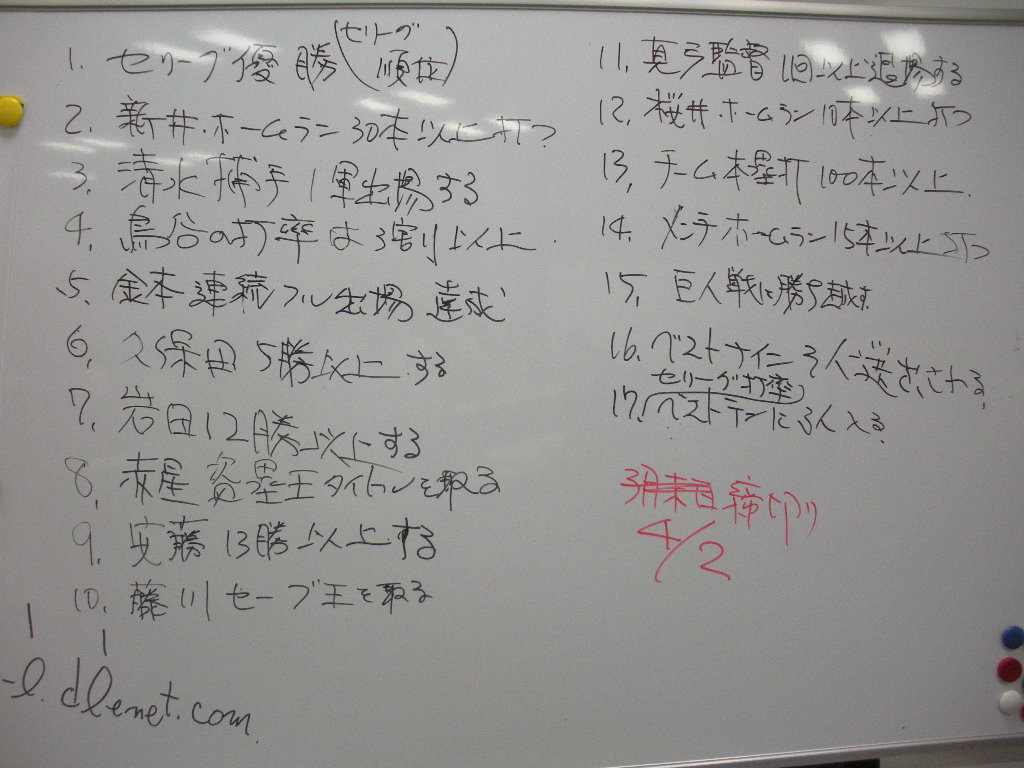 1. セリーグ優勝(セリーグ順位)
2. 新井・ホームラン30本以上打つ
3. 清水捕手1軍出場する
4. 鳥谷の打率は3割以上.
5. 金本連続フル出場達成
6. 久保田5勝以上する
7. 岩田12勝以上する
8. 赤星盗塁王タイトルを取る
9. 安藤13勝以上する
10. 藤川セーブ王を取る
11. 真弓監督1回以上退場する
12. 桜井・ホームラン10本以上打つ
13. チーム本塁打100本以上.
14. メンチホームラン15本以上打つ
15. 巨人戦に勝ち越す
16. ベストナイン3人選出される.
セリーグ打率
17. ベストテンに3人入る.
3月末日締切り
4/2
-l.dlenet.com.